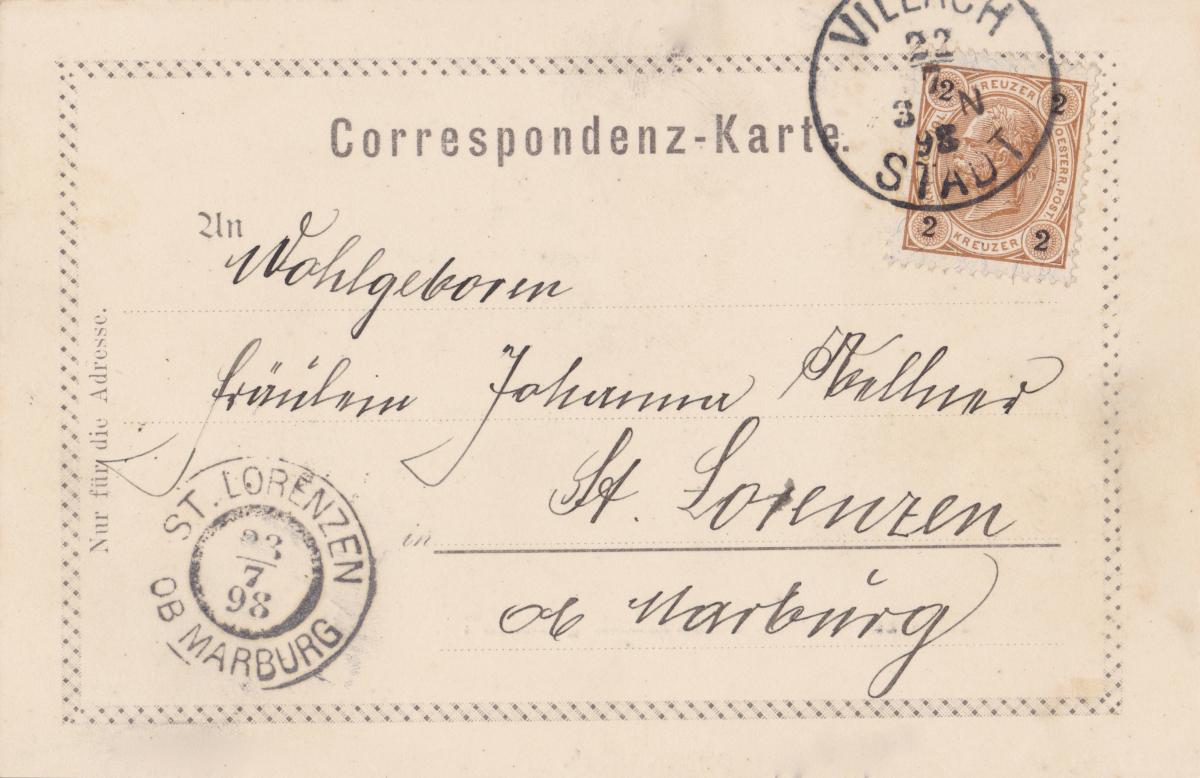 Correspondenz-Karte.
VILLACH
22
7
3 N
98
STADT
2 KREUZER 2
OESTERR. POST.
2 KREUZER 2
An
Wohlgeboren
Fräulein Johanna Kellner
St. Lorenzen
in
ob Marburg
Nur für die Adresse.
ST. LORENZEN
23
7
98
OB MARBURG